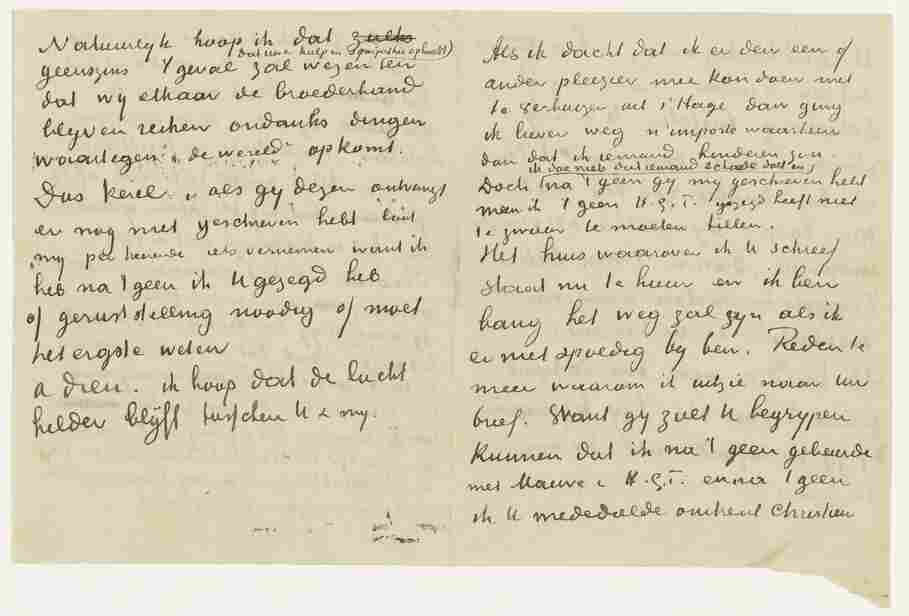 Natuurlyk hoop ik dat zulks
(dat uwe hulp en sympathie ophoudt)
geenszins 't geval zal wezen en
dat wy elkaar de broederhand
blyven reiken ondanks dingen
waartegen „de wereld” opkomt.
Dus kerel, als gy dezen ontvangt
en nog niet geschreven hebt laat
my per keerende iets vernemen want ik
heb na 't geen ik U gezegd heb
of geruststelling noodig of moet
het ergste weten
adieu. ik hoop dat de lucht
helder blyft tusschen U & my.
Als ik dacht dat ik er den een of
ander pleizier mee kon doen met
te verhuizen uit s'Hage dan ging
ik liever weg n'importe waarheen
dan dat ik iemand hinderen zou.
ik doe niets dat iemand schade doet en
Doch na 't geen gy my geschreven hebt
meen ik 't geen H.G.T. gezegd heeft niet
te zwaar te moeten tillen.
Het huis waarover ik U schreef
staat nu te huur en ik ben
bang het weg zal zyn als ik
er niet spoedig by ben. Reden te
meer waarom ik uitzie naar Uw
brief. Want gy zult U begrypen
kunnen dat ik na 't geen gebeurde
met Mauve & H.G.T. en na 't geen
ik U mededeelde omtrent Christien